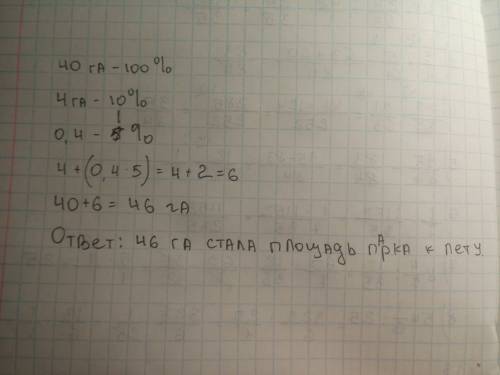 40 га - 100%
4 га - 10%
0,4 - 1%
4 + (0,4 · 5) = 4 + 2 = 6
40 + 6 = 46 га
Ответ: 46 га стала площадь парка к лету.